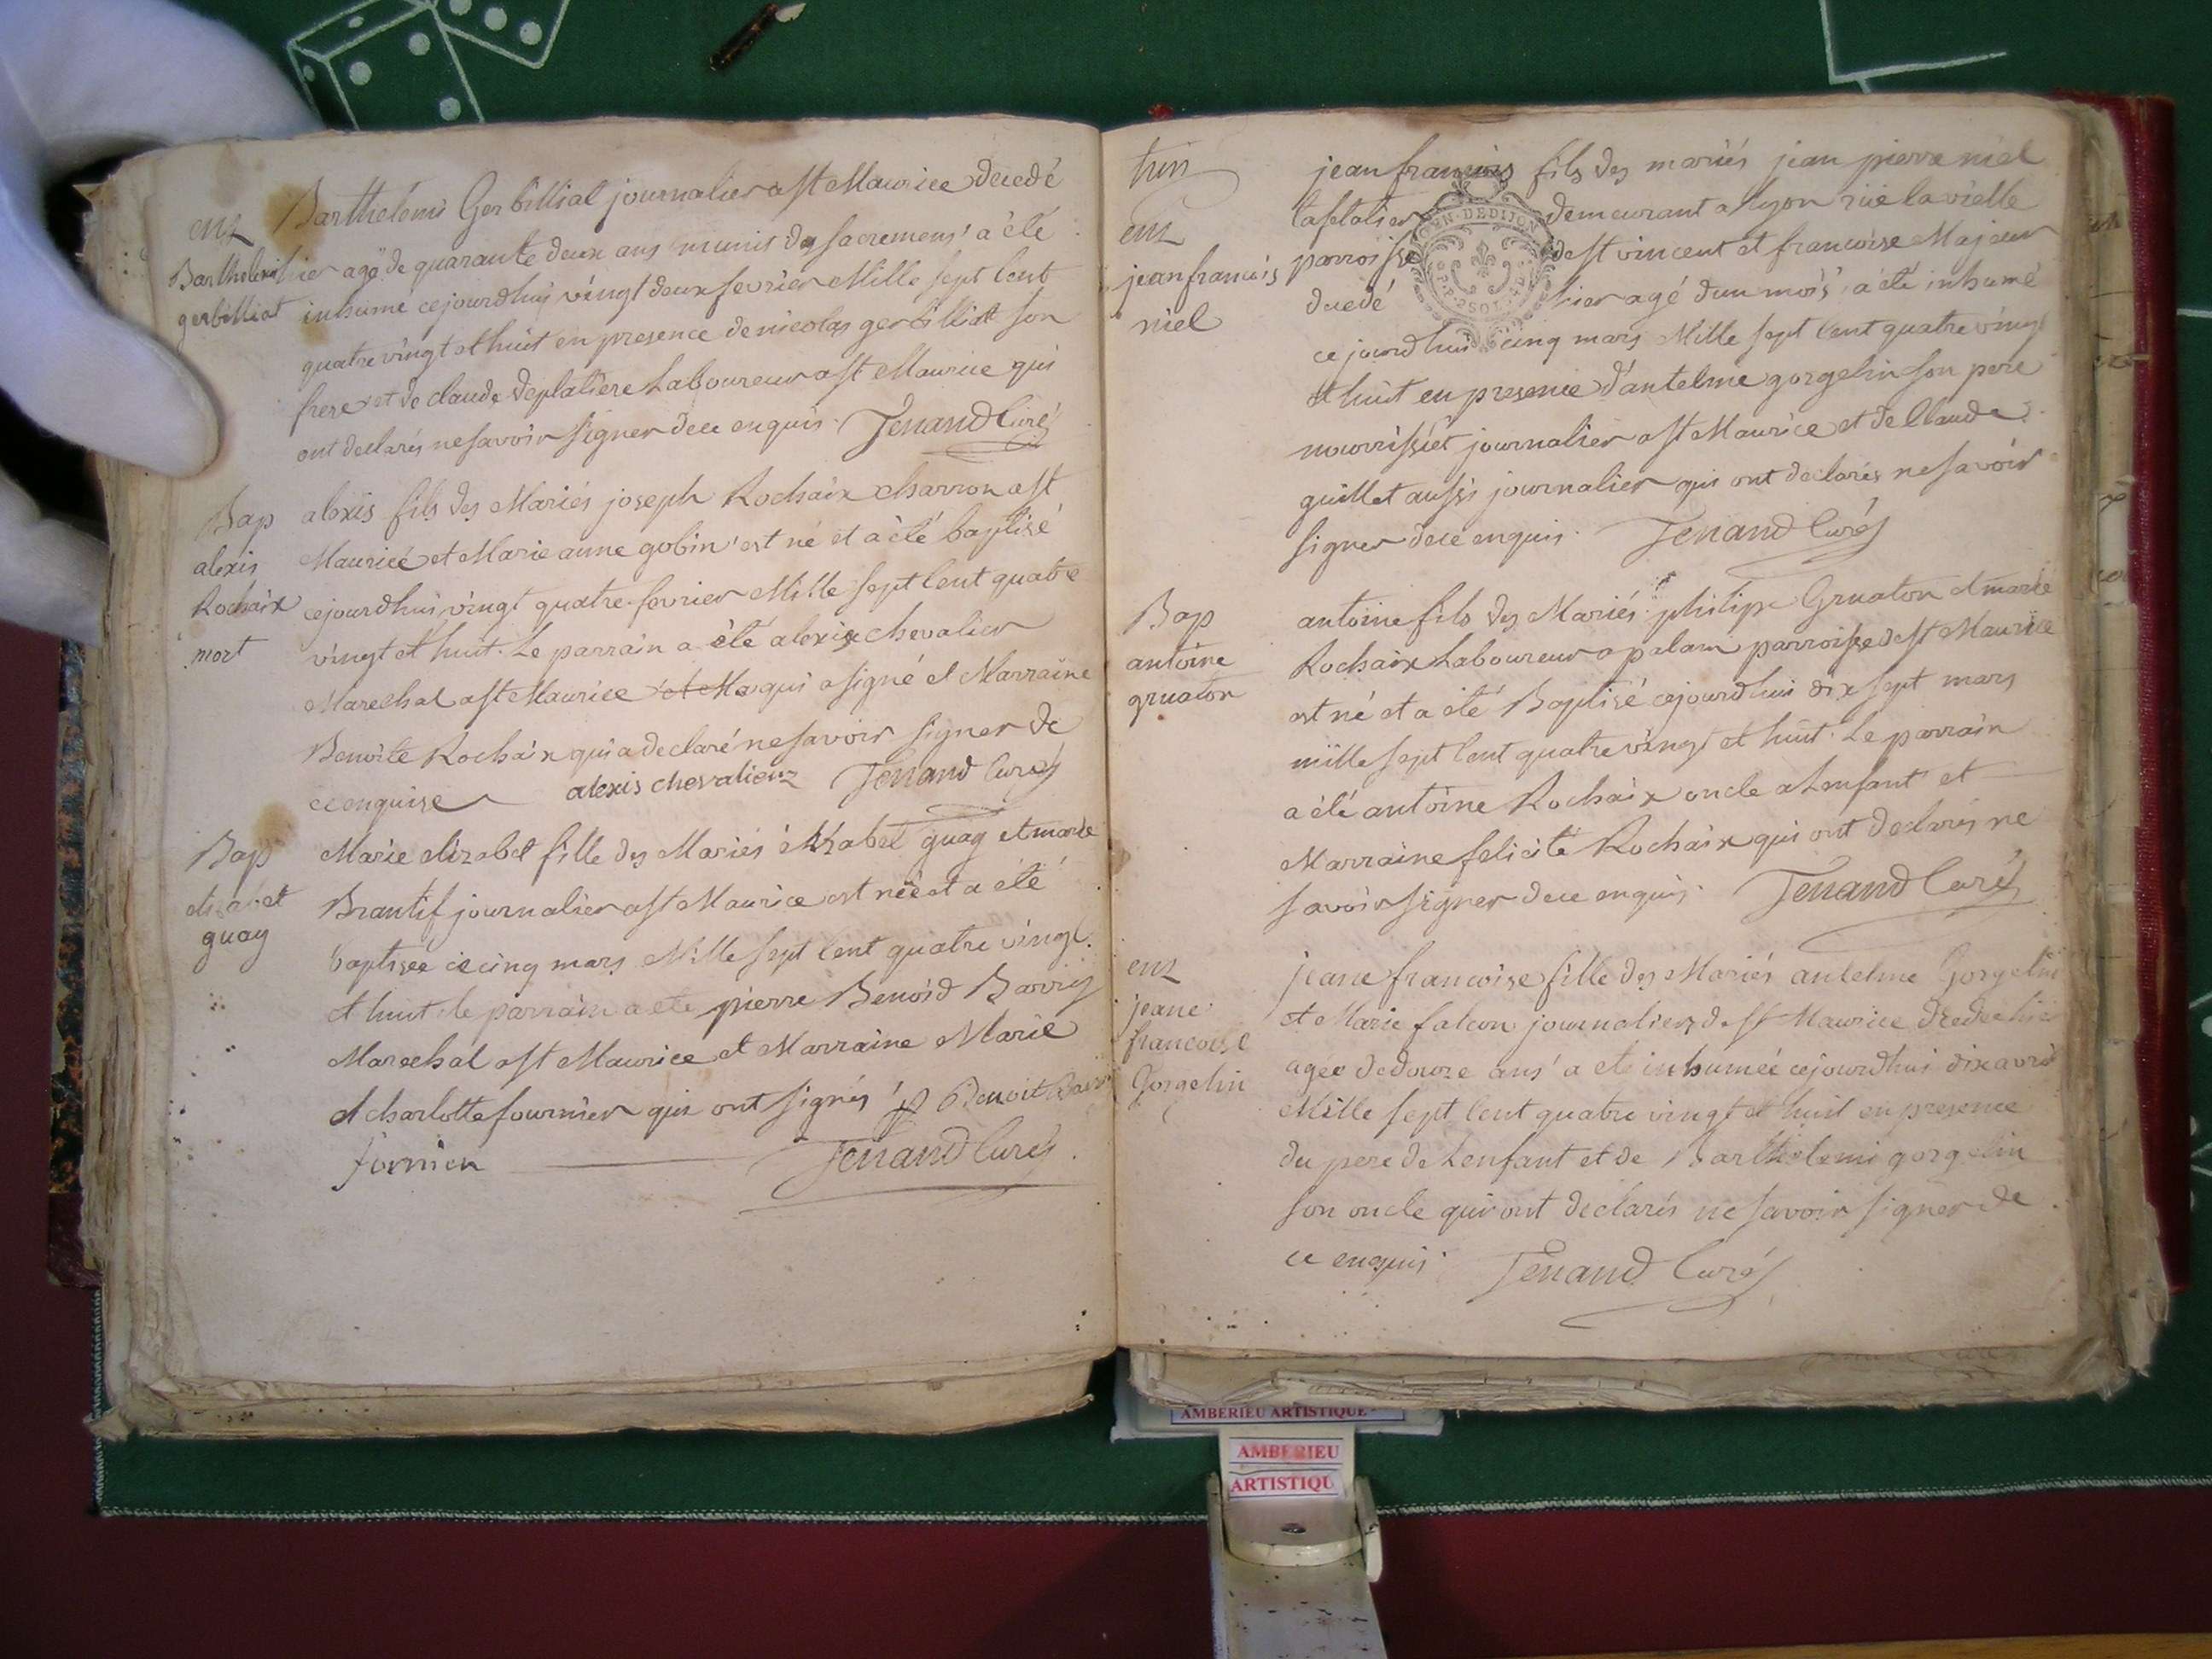 ent
Barthelemi
gerbilliat
Barthélémi Gerbillial journalier a st Maurice decedé
hier agé de quarante deux ans munis des sacremens a été
inhumé cejourdhui vingt deux fevrier Mille sept cent
quatre vingt et huit en presence de nicolas gerbilliat son
frere et de claude deplatiere Laboureur a st Maurice qui
ont declarés ne savoir signer de ce enquis. Tenand Curé
Bap
alexis
Rochaix
mort
alexis fils des Mariés joseph Rochaix charron a st
Maurice et Marie anne gobin est né et a été baptisé
cejourdhui vingt quatre fevrier Mille sept cent quatre
vingt et huit. Le parrain a été alexis chevalier
Marechal a st Maurice et Ma qui a signé et Marraine
Benoite Rochaix qui a declaré ne savoir signer de
ce enquise alexis chevalier Tenand Curé
Bap
guay
Marie elizabet fille des Mariés guay et marie
Brantif journalier a st Maurice est née et a été
baptisée ce cinq mars Mille sept cent quatre vingt
et huit le parrain a été pierre Benoid Barry
Marechal a st Maurice et Marraine Marie
et charlotte fournier qui ont signés p Benoit
fornier Tenand Curé
ent
jean francois
niel
jean francois fils des mariés jean pierre niel
tafetatier demeurant a lyon rüe la vielle
parroisse de st vincent et francoise Majeur
decedé hier agé dun mois a été inhumé
ce jourdhui cinq mars Mille sept cent quatre vingt
et huit en presence d'antelme gorgelin son pere
nourrissier journalier a st Maurice et de Claude
guillet aussi journalier qui ont declarés ne savoir
signer de ce enquis. Tenand Curé
GEN. DE DIJON
Bap
antoine
gruaton
antoine fils des Mariés philipe Gruaton et marie
Rochaix Laboureur a palain parroisse de st Maurice
est né et a été Baptisé cejourdhui dix sept mars
mille sept cent quatre vingt et huit. Le parrain
a été antoine Rochaix oncle a Lenfant et
Marraine felicité Rochaix qui ont declarés ne
savoir signer de ce enquis. Tenand Curé
ent
jeane
francoise
Gorgelin
jeane francoise fille des Mariés antelme Gorgelin
et Marie falcon journaliers de st Maurice decedée hier
agée de douze ans a été inhumée cejourdhui dix avril
Mille sept cent quatre vingt et huit en presence
du pere de Lenfant et de Barthelemi gorgelin
son oncle qui ont declarés ne savoir signer de
ce enquis. Tenand Curé
AMBERIEU ARTISTIQUE
AMBERIEU
ARTISTIQU